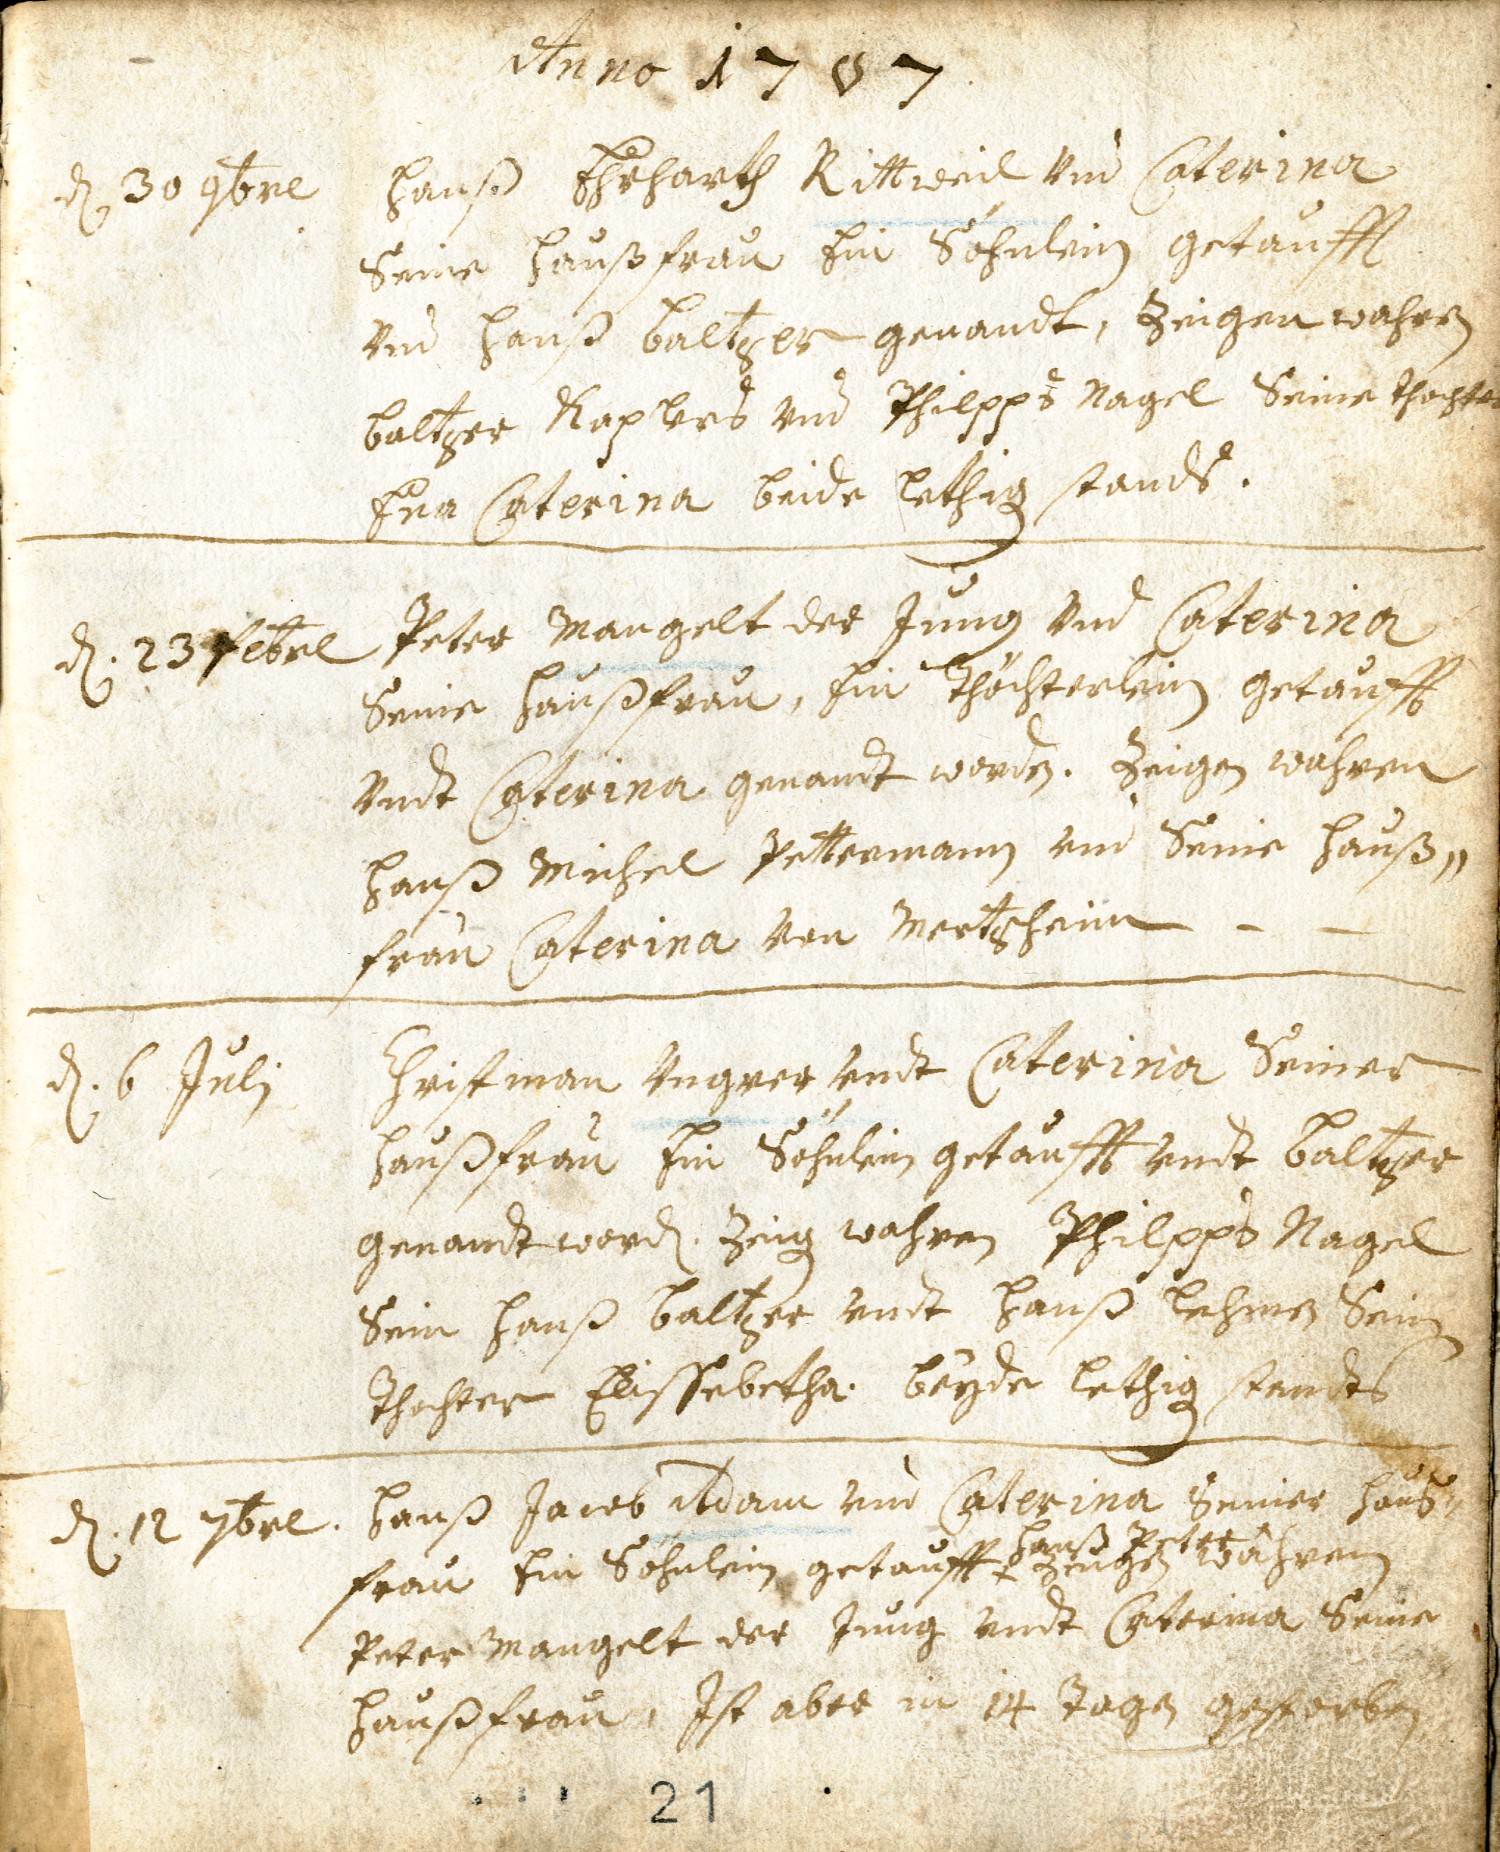 Anno 1707
d. 30 9bre Hanß Ehrharth Rittweil Vnd Caterina
Seine Haußfrau Ein Söhnlein getaufft
Vnd Hanß Baltzer genandt, Zeigen wahren
Baltzer Kaplers Vnd Philpps Nagel Seine Thochter
Eva Caterina beide lethig stands.
d. 23 febre Peter Mangelt der Jung Vnd Caterina
Seine Haußfrau, Ein Thöchterlein getaufft
Vndt Caterina genandt worden. Zeigen wahren
Hanß Michel Pettermann vnd Seine Hauß„
frau Caterina Von Mertzheim - -
d. 6 Julj Christman Vngrer Vndt Caterina Seiner
Haußfrau Ein Söhnlein getaufft Vndt Baltzer
genandt word. Zeig wahren Philpps Nagel
Sein Hanß Baltzer Vndt Hanß Lehmen Sein
Thochter Elissebetha. beyde lethig standts
d. 12 7bre. Hanß Jacob Adam vnd Caterina Seiner Hauß„
Hanß Peter
frau Ein Söhnlein getaufft Zeugen wahren
Peter Mangelt der Jung Vndt Caterina Seine
Haußfrau, Ist aber in 14 Tagen gestorben
21